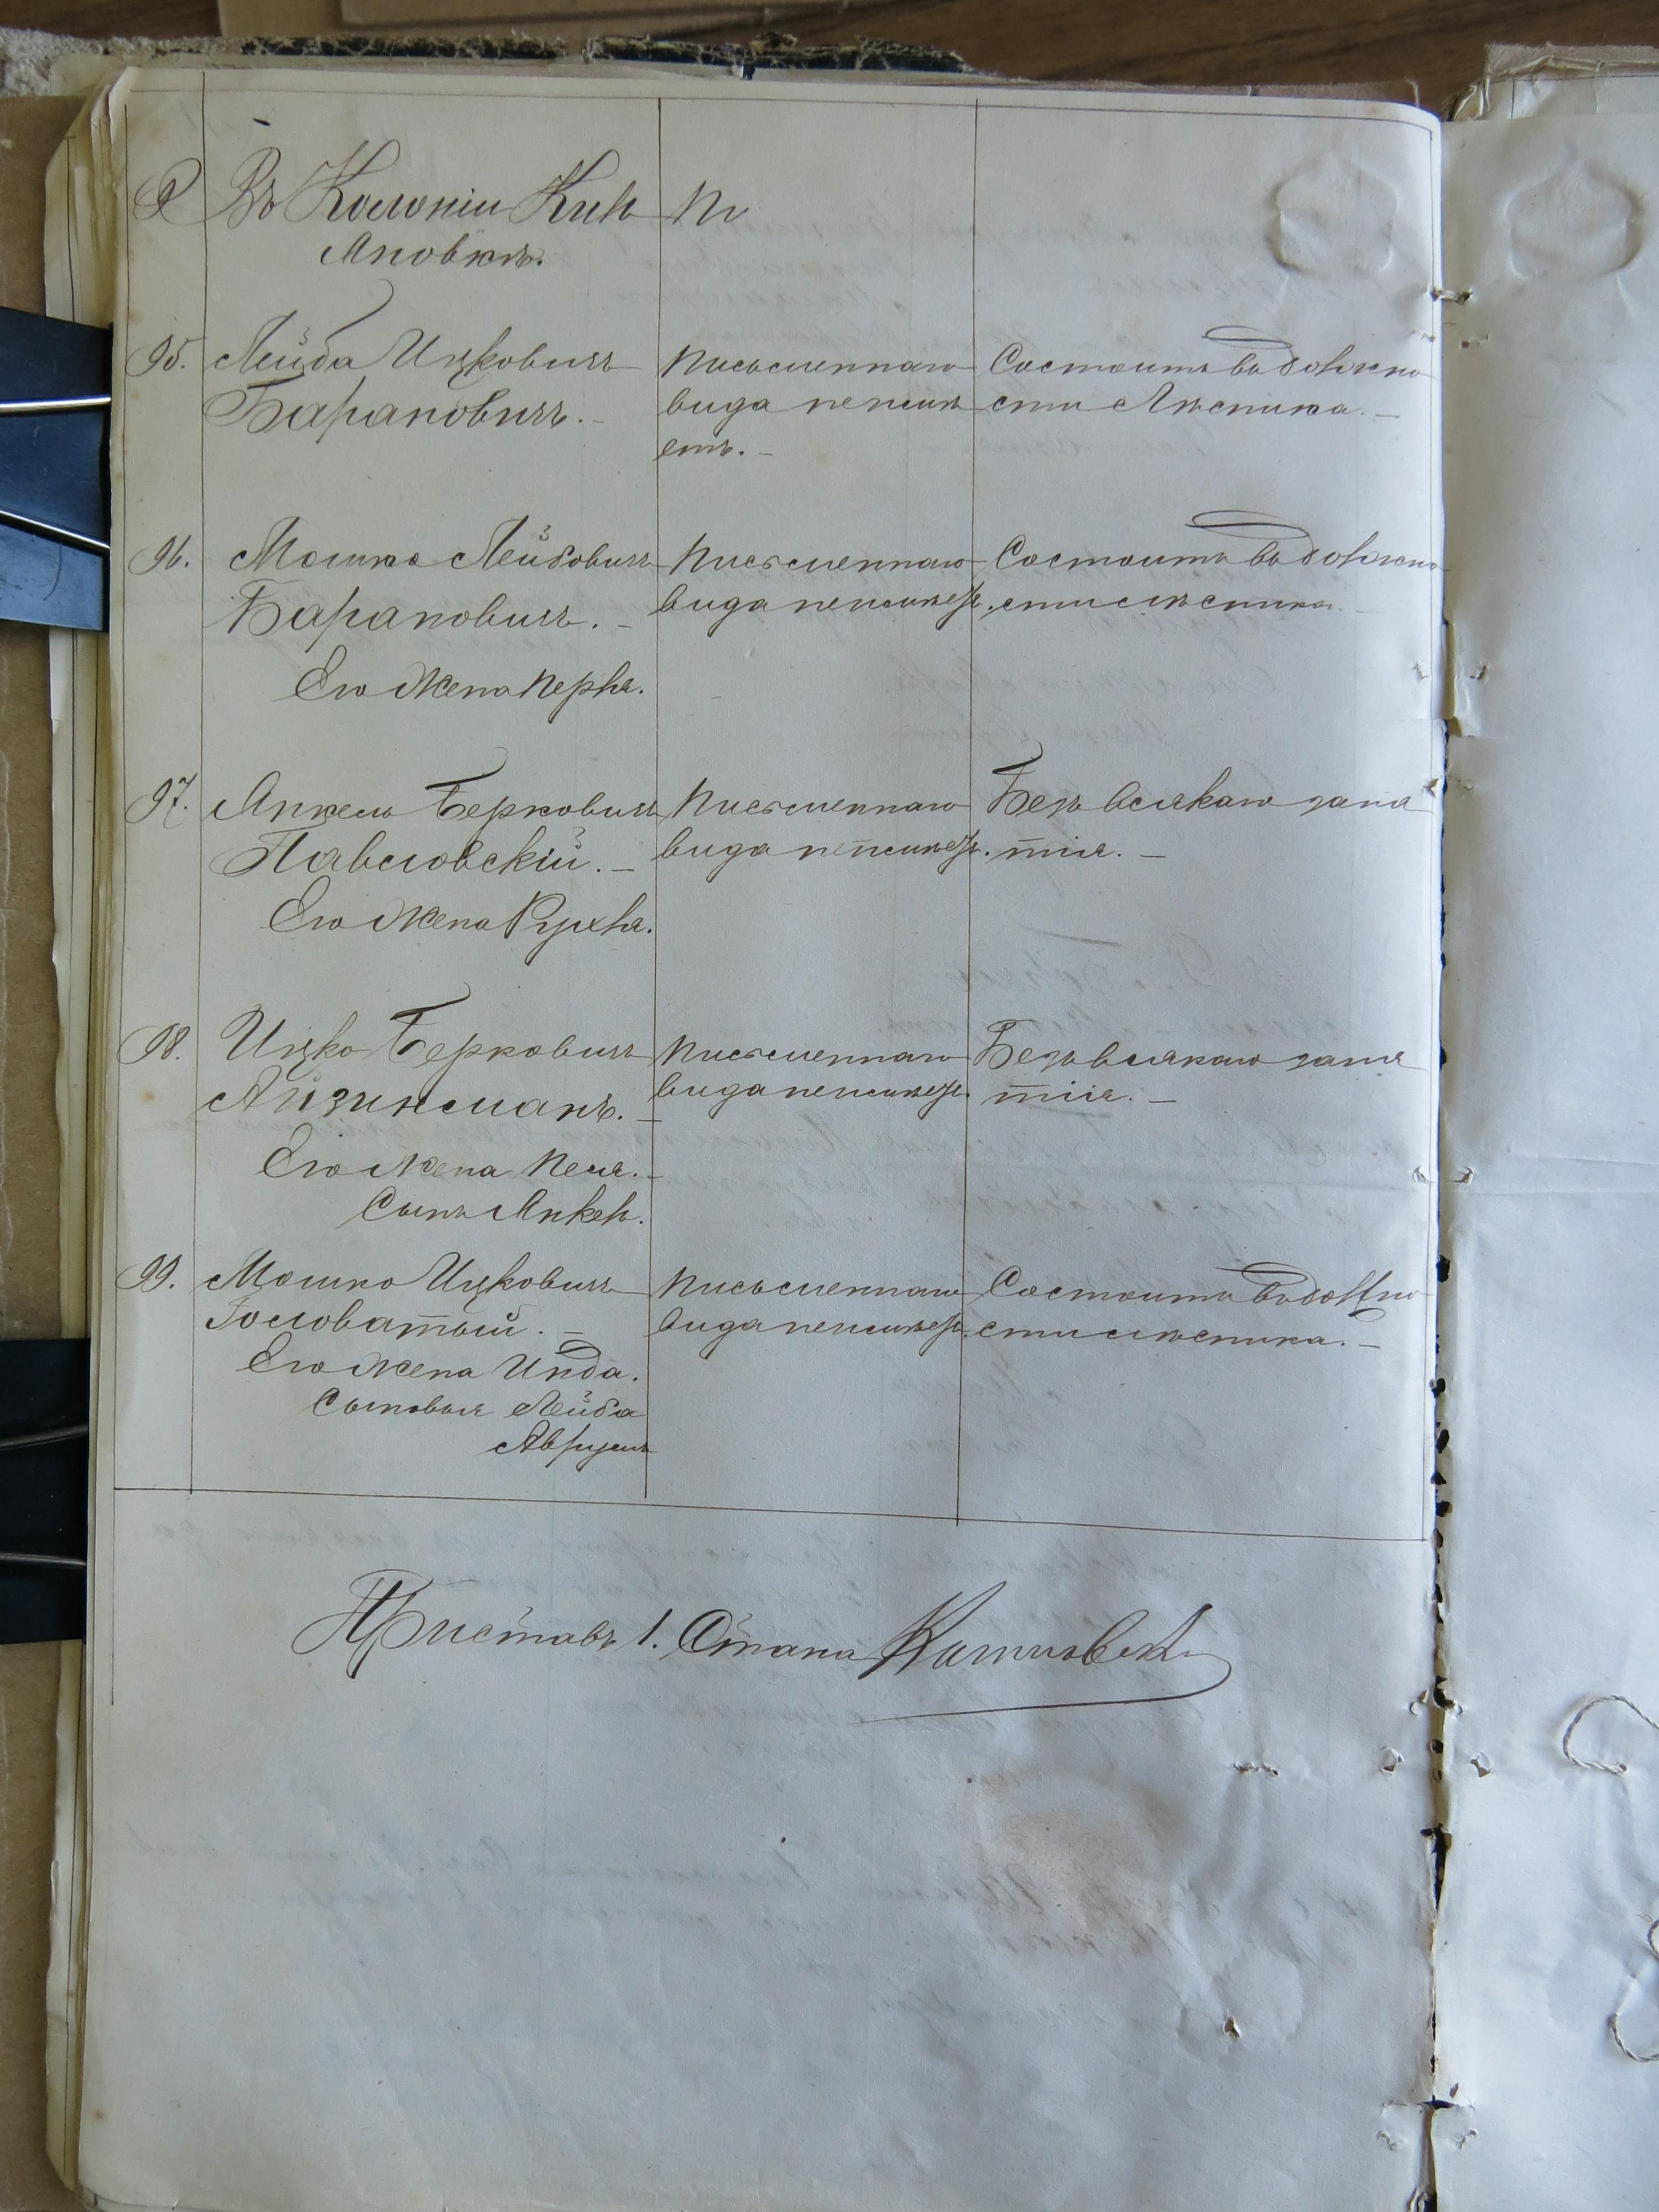 Въ Колоніи Кип
Ановкѣ.
95. Лейба Ицковичъ
Барановичъ. –
Письменнаго
вида неимѣ
етъ. –
Состоитъ въ должно
сти Лѣсника. –
96. Мошко Лейбовичъ
Барановичъ. –
Его Жена Перля.
Письменнаго
вида неимѣетъ.
Состоитъ въ должно
сти лѣсника. –
97. Янкель Берковичъ
Павловскій. –
Его Жена Рухля.
Письменнаго
вида неимѣетъ.
Безъ всякаго заня
тія. –
98. Ицко Берковичъ
Айзинманъ. –
Его Жена Неля. –
Сынъ Янкель.
Письменнаго
вида неимѣетъ.
Безъ всякаго заня
тія. –
99. Мошко Ицковичъ
Головатый. –
Его Жена Инда.
Сыновья Лейба
Аврумъ
Письменнаго
вида неимѣетъ.
Состоитъ въ должно
сти лѣсника. –
Приставъ 1. Стана